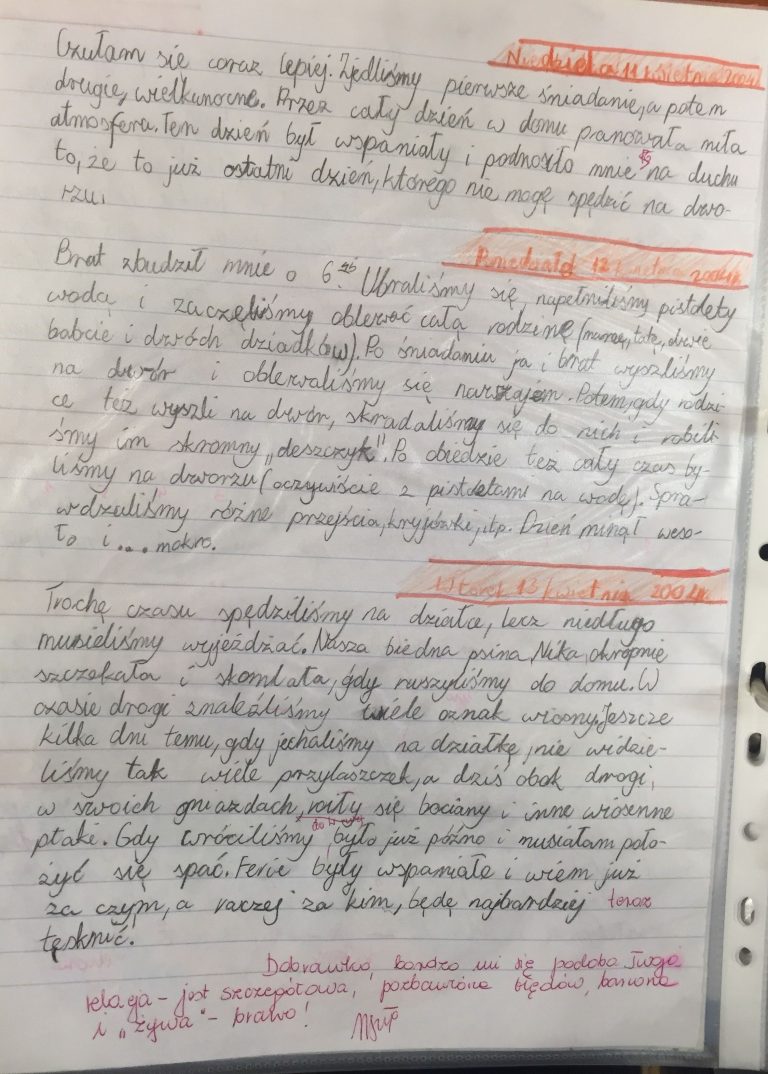 Niedziela 11 kwietnia 2004r.
Czułam się coraz lepiej. Zjedliśmy pierwsze śniadanie, a potem
drugie, wielkanocne. Przez cały dzień w domu panowała miła
atmosfera. Ten dzień był wspaniały i podnosiło mnie na duchu
to, że to już ostatni dzień, którego nie mogę spędzić na dwo-
rzu.
Poniedziałek 12 kwietnia 2004r.
Brat zbudził mnie o 6. Ubraliśmy się, napełniliśmy pistolety
wodą i zaczęliśmy oblewać całą rodzinę (mamę, tatę, dwie
babcie i dwóch dziadków). Po śniadaniu ja i brat wyszliśmy
na dwór i oblewaliśmy się nawzajem. Potem, gdy rodzi-
ce też wyszli na dwór, skradaliśmy się do nich i robili-
śmy im skromny „deszczyk". Po obiedzie też cały czas by-
liśmy na dworzu (oczywiście z pistoletami na wodę). Spra-
wdzaliśmy różne przejścia, kryjówki, itp. Dzień minął weso-
ło i... mokro.
Wtorek 13 kwietnia 2004r.
Trochę czasu spędziliśmy na działce, lecz niedługo
musieliśmy wyjeżdżać. Nasza biedna psina, Nika, okropnie
szczekała i skomlała, gdy ruszyliśmy do domu. W
czasie drogi znaleźliśmy wiele oznak wiosny. Jeszcze
kilka dni temu, gdy jechaliśmy na działkę, nie widzie-
liśmy tak wiele przylaszczek, a dziś obok drogi,
w swoich gniazdach, roiły się bociany i inne wiosenne
ptaki. Gdy wróciliśmy do domu, było już późno i musiałam poło-
żyć się spać. Ferie były wspaniałe i wiem już
za czym, a raczej za kim, będę najbardziej teraz
tęsknić.
Dobrawko, bardzo mi się podoba Twoja
relacja - jest szczegółowa, pozbawiona błędów, barwna
i „żywa" - brawo!